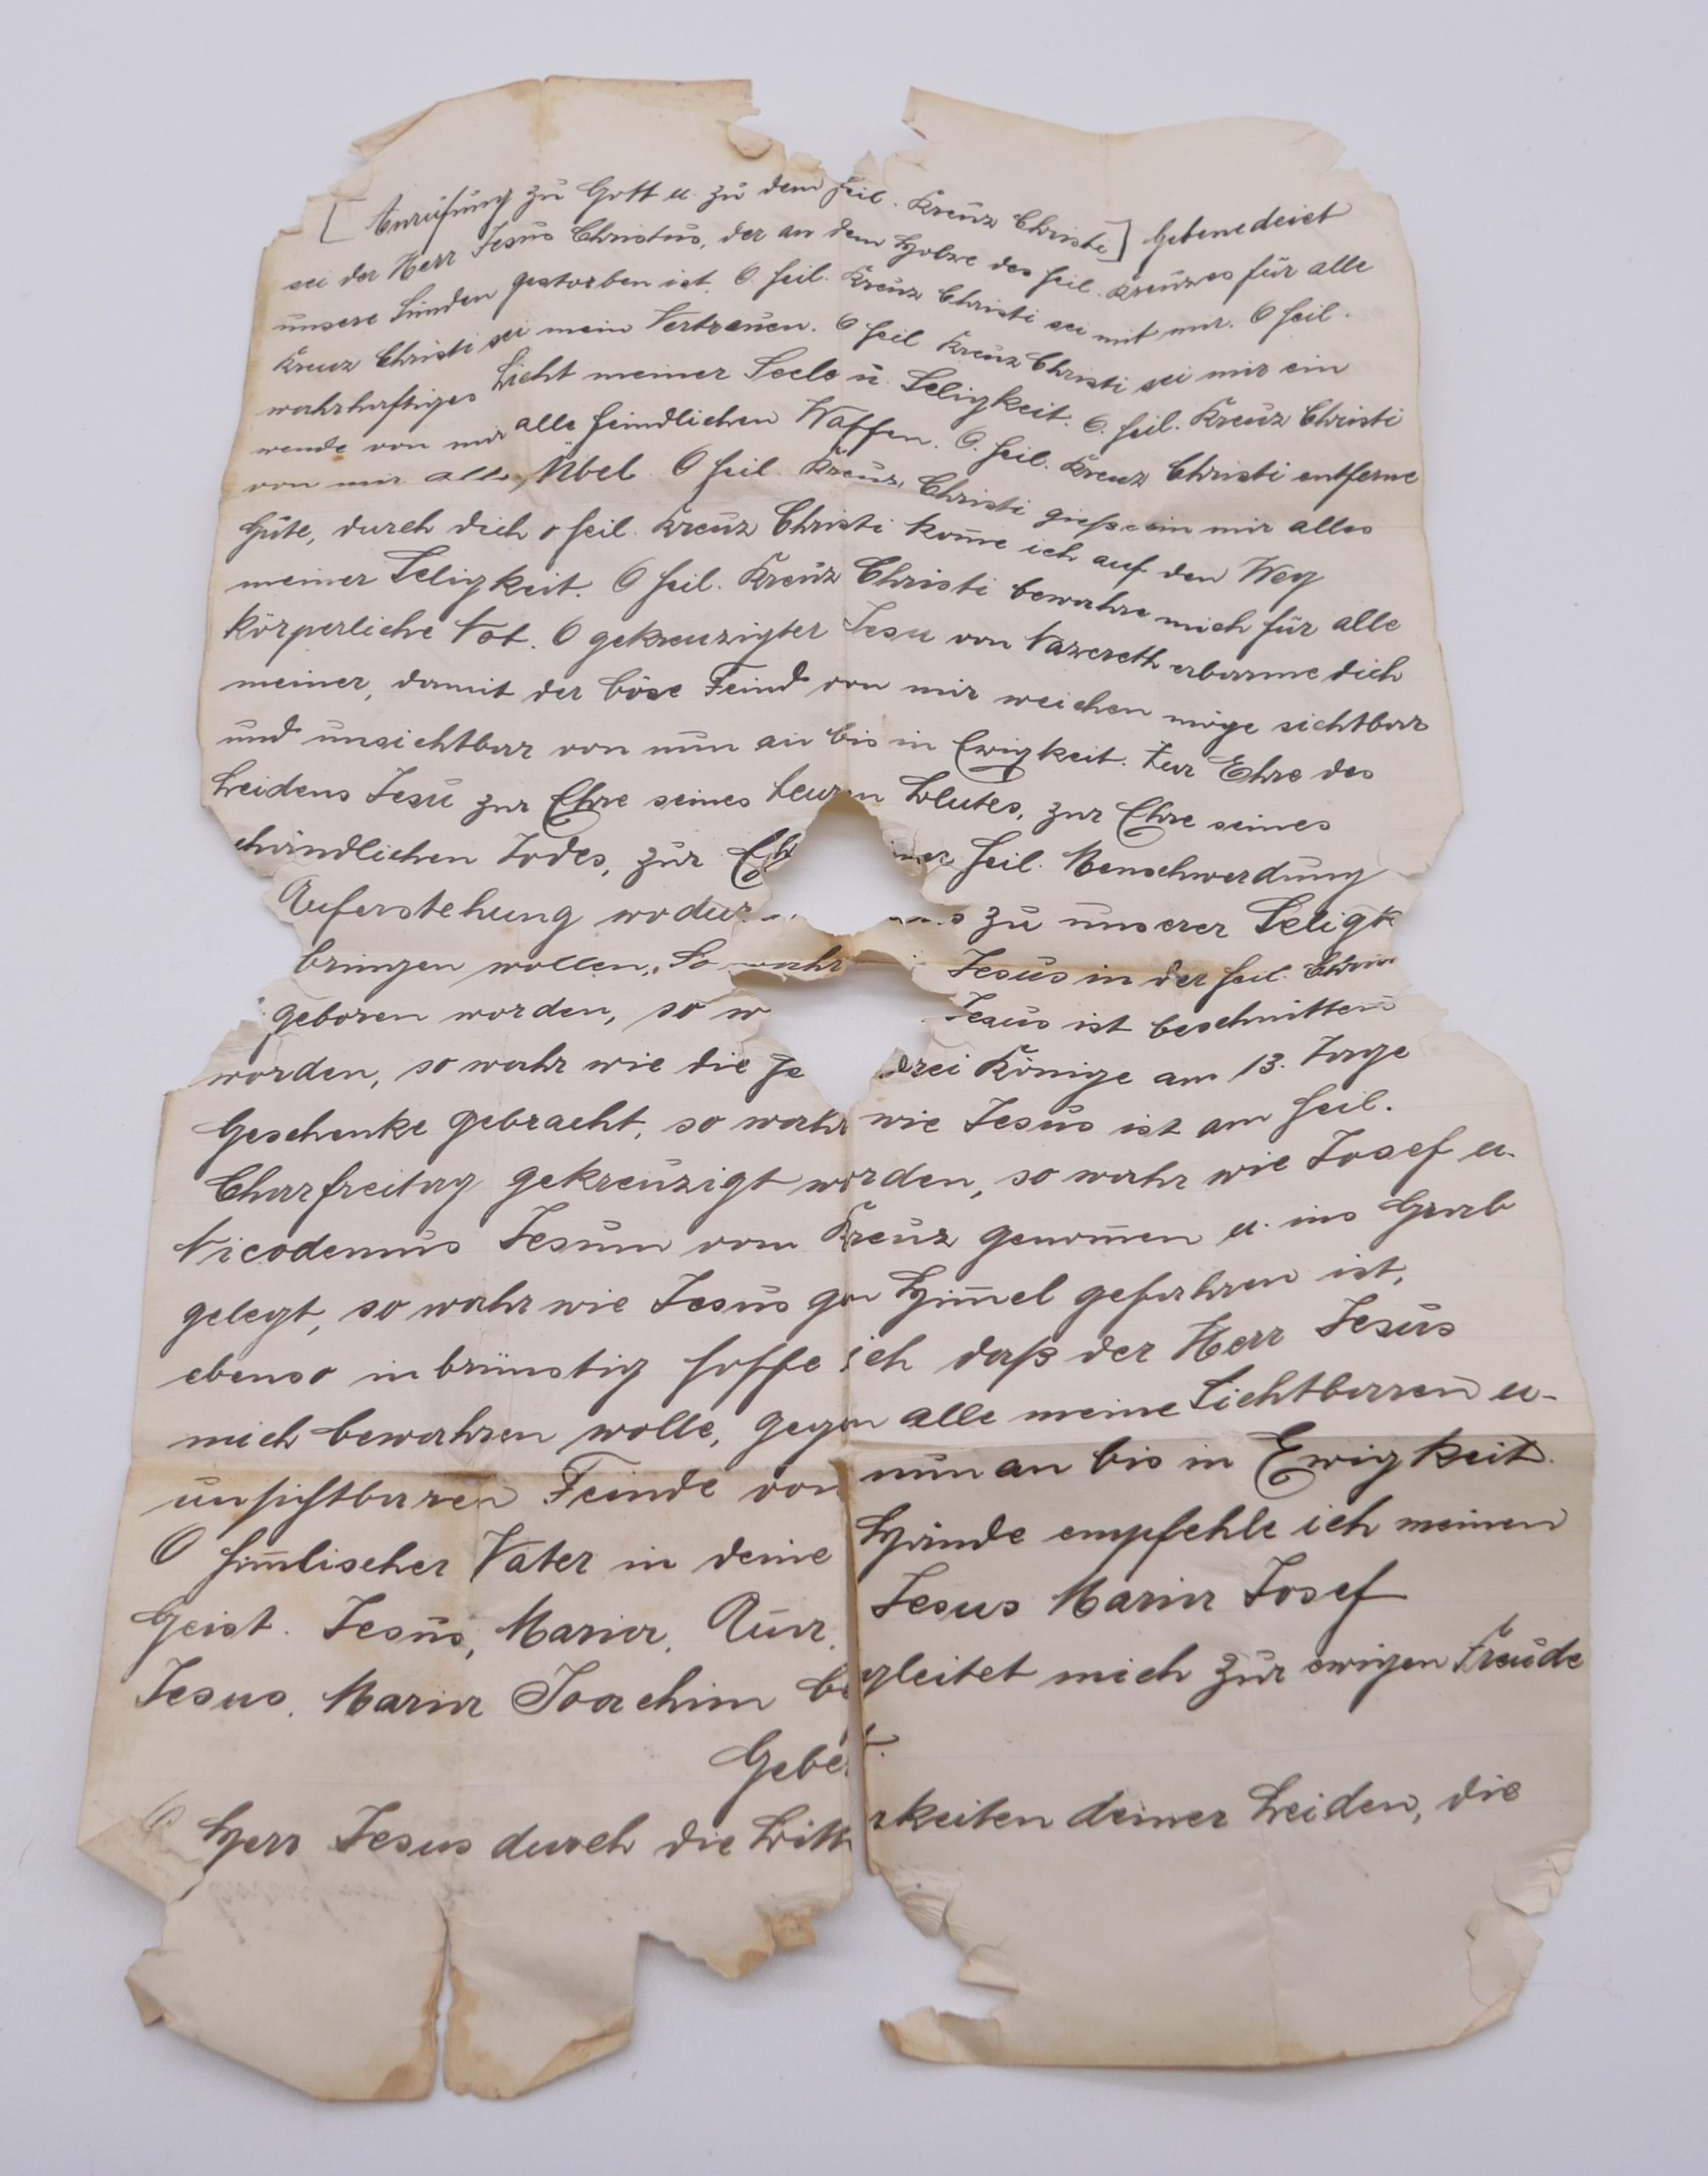 [Anrufung zu Gott u. zu dem heil. Kreuz Christi] Gebenedeiet
sei der Herr Jesus Christus, der an dem Holze des heil. Kreuzes für alle
unsere Sünden gestorben ist. O heil. Kreuz Christi sei mit mir. O heil.
Kreuz Christi sei mein Vertrauen. O heil. Kreuz Christi sei mir ein
wahrhaftiges Licht meiner Seele u. Seligkeit. O. heil. Kreuz Christi
wende von mir alle feindlichen Waffen. O. heil. Kreuz Christi entferne
von mir alle Übel. O heil. Kreuz Christi gieße ein mir alles
Gute, durch dich o heil. Kreuz Christi kom̅e ich auf den Weg
meiner Seligkeit. O heil. Kreuz Christi bewahre mich für alle
körperliche Not. O gekreuzigter Jesu von Nazereth erbarme dich
meiner, damit der böse Feind von mir weichen möge sichtbar
und unsichtbar von nun an bis in Ewigkeit. Zur Ehre des
Leidens Jesu zur Ehre seines teuren Blutes, zur Ehre seines
chändlichen Todes, zur Eh iner heil. Menschwerdung
Auferstehung wodur s zu unserer Seligk
bringen wollen. So wahr Jesus in der heil.
geboren worden, so w Jesus ist beschnitten
worden, so wahr wie die he drei Könige am 13. Tage
Geschenke gebracht, so wahr wie Jesus ist am heil.
Charfreitag gekreuzigt worden, so wahr wie Josef u.
Nicodemus Jesum vom Kreuz genom̅en u. ins Grab
gelegt, so wahr wie Jesus gen Him̅el gefahren ist,
ebenso inbrünstig hoffe ich daß der Herr Jesus
mich bewahren wolle, gegen alle meine Sichtbaren u-
unsichtbaren Feinde von nun an bis in Ewigkeit.
O him̅lischer Vater in deine Hände empfehle ich meinen
Geist. Jesus, Maria, Anna. Jesus Maria Josef
Jesus. Maria Joachim begleitet mich zur ewigen Freude
Gebet.
O Herr Jesus durch die Bitterkeiten deiner Leiden, die